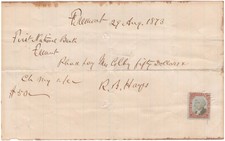 Fremont 29 Aug. 1873
First National Bank
Fremont
Please pay Mr fifty Dollars &
Ch my a/c
$50 R. B. Hayes